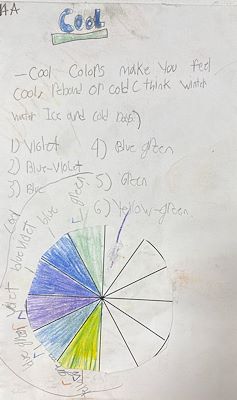 AA
Cool
- Cool Colors make you feel
Cool, or cold (think winter
water Ice and cold
1) Violet 4) Blue green
2) Blue-Violet 5) Green
3) Blue 6) Yellow-green
green
blue
blue violet
violet